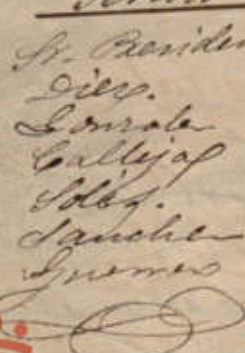 Sr. Presiden
Diez.
Gonzalez
Callejas
Soler.
Sanchez